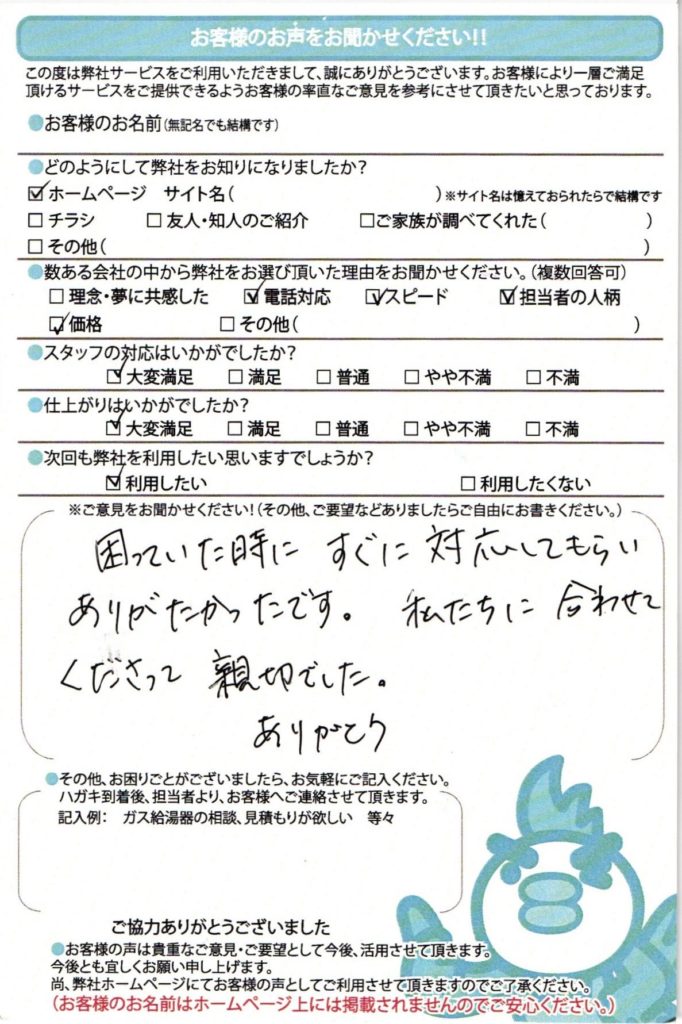 お客様のお声をお聞かせください!!
この度は弊社サービスをご利用いただきまして、誠にありがとうございます。お客様により一層ご満足
頂けるサービスをご提供できるようお客様の率直なご意見を参考にさせて頂きたいと思っております。
●お客様のお名前(無記名でも結構です)
●どのようにして弊社をお知りになりましたか?
☑ホームページ サイト名( )※サイト名は憶えておられたらで結構です
□チラシ □友人・知人のご紹介 □ご家族が調べてくれた( )
□その他( )
●数ある会社の中から弊社をお選び頂いた理由をお聞かせください。(複数回答可)
□理念・夢に共感した ☑電話対応 ☑スピード ☑担当者の人柄
☑価格 □その他( )
●スタッフの対応はいかがでしたか?
☑大変満足 □満足 □普通 □やや不満 □不満
●仕上がりはいかがでしたか?
☑大変満足 □満足 □普通 □やや不満 □不満
●次回も弊社を利用したい思いますでしょうか?
☑利用したい □利用したくない
※ご意見をお聞かせください!(その他、ご要望などありましたらご自由にお書きください。)
困っていた時に すぐに 対応してもらい
ありがたかったです。 私たちに 合わせて
くださって 親切でした。
ありがとう
●その他、お困りごとがございましたら、お気軽にご記入ください。
ハガキ到着後、担当者より、お客様へご連絡させて頂きます。
記入例: ガス給湯器の相談、見積もりが欲しい 等々
ご協力ありがとうございました
●お客様の声は貴重なご意見・ご要望として今後、活用させて頂きます。
今後とも宜しくお願い申し上げます。
尚、弊社ホームページにてお客様の声としてご利用させて頂きますのでご了承ください。
(お客様のお名前はホームページ上には掲載されませんのでご安心ください。)